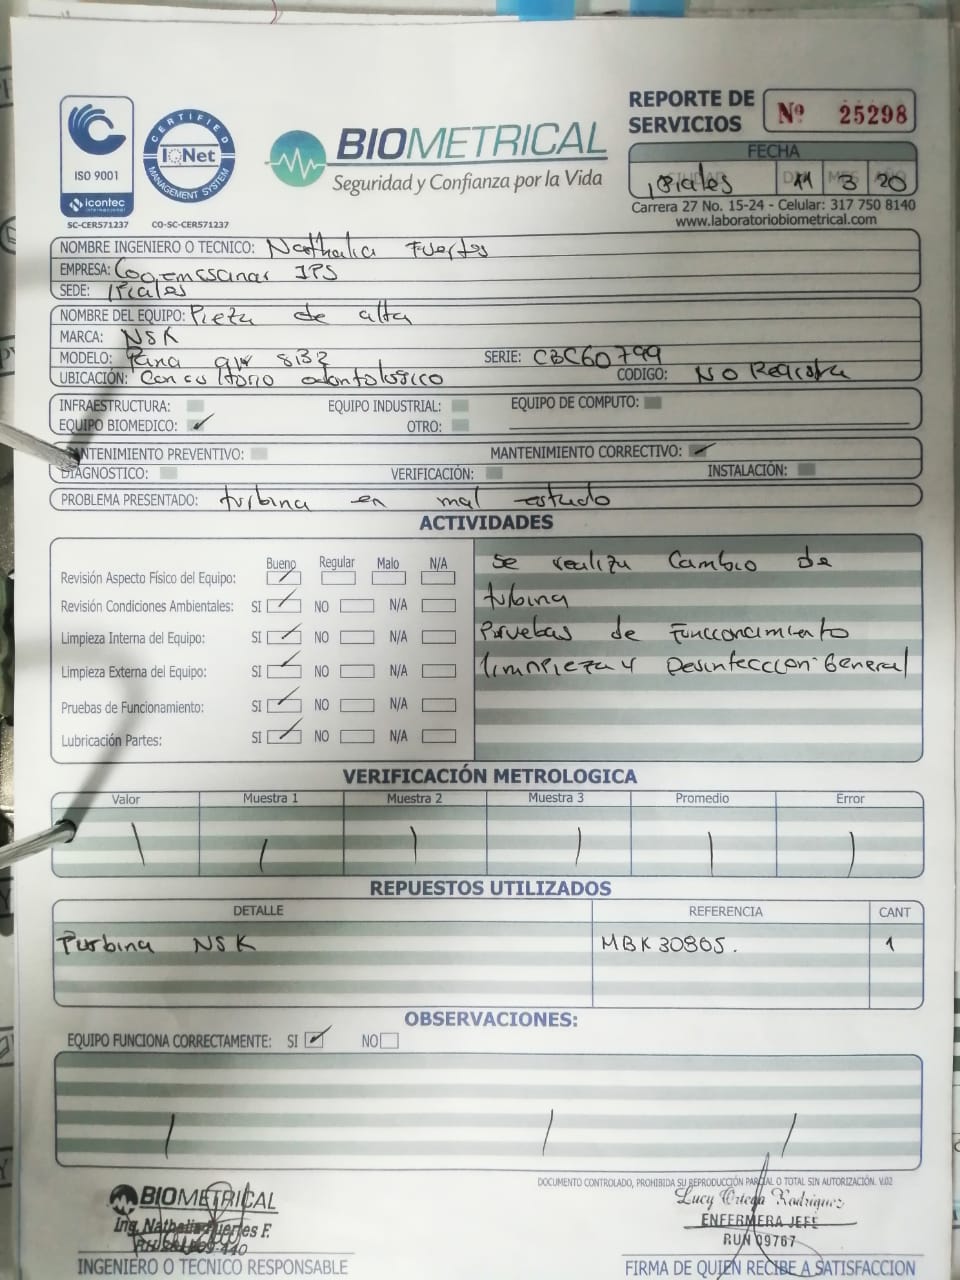 ISO 9001
icontec
internacional
SC-CER571237
CERTIFIED
IQNet
MANAGEMENT SYSTEM
CO-SC-CER571237
BIOMETRICAL
Seguridad y Confianza por la Vida
REPORTE DE SERVICIOS
Nº 25298
FECHA
Ipiales 11 3 20
Carrera 27 No. 15-24 - Celular: 317 750 8140
www.laboratoriobiometrical.com
NOMBRE INGENIERO O TECNICO: Nathalia Fuertes
EMPRESA: Cooemssanar IPS
SEDE: Ipiales
NOMBRE DEL EQUIPO: Pieza de alta
MARCA: NSK
MODELO: Pana SERIE: CBC60799
UBICACIÓN: Consultorio odontologico CODIGO: NO Registra
INFRAESTRUCTURA: EQUIPO INDUSTRIAL: EQUIPO DE COMPUTO:
EQUIPO BIOMEDICO: ✓ OTRO:
MANTENIMIENTO PREVENTIVO: MANTENIMIENTO CORRECTIVO: ✓
DIAGNOSTICO: VERIFICACIÓN: INSTALACIÓN:
PROBLEMA PRESENTADO: turbina en mal estado
ACTIVIDADES
Bueno Regular Malo N/A
Revisión Aspecto Físico del Equipo:
Revisión Condiciones Ambientales: SI NO N/A
Limpieza Interna del Equipo: SI NO N/A
Limpieza Externa del Equipo: SI NO N/A
Pruebas de Funcionamiento: SI NO N/A
Lubricación Partes: SI NO N/A
Se realiza Cambio de
turbina
Pruebas de Funcionamiento
limpieza y Desinfeccion General
VERIFICACIÓN METROLOGICA
Valor Muestra 1 Muestra 2 Muestra 3 Promedio Error
REPUESTOS UTILIZADOS
DETALLE REFERENCIA CANT
Turbina NSK MBK30805. 1
OBSERVACIONES:
EQUIPO FUNCIONA CORRECTAMENTE: SI ✓ NO
DOCUMENTO CONTROLADO, PROHIBIDA SU REPRODUCCIÓN PARCIAL O TOTAL SIN AUTORIZACIÓN. V.02
BIOMETRICAL
Ing. Nathalia Fuertes F.
INGENIERO O TECNICO RESPONSABLE
Lucy Ortega Rodriguez
ENFERMERA JEFE
RUN 09767
FIRMA DE QUIEN RECIBE A SATISFACCION